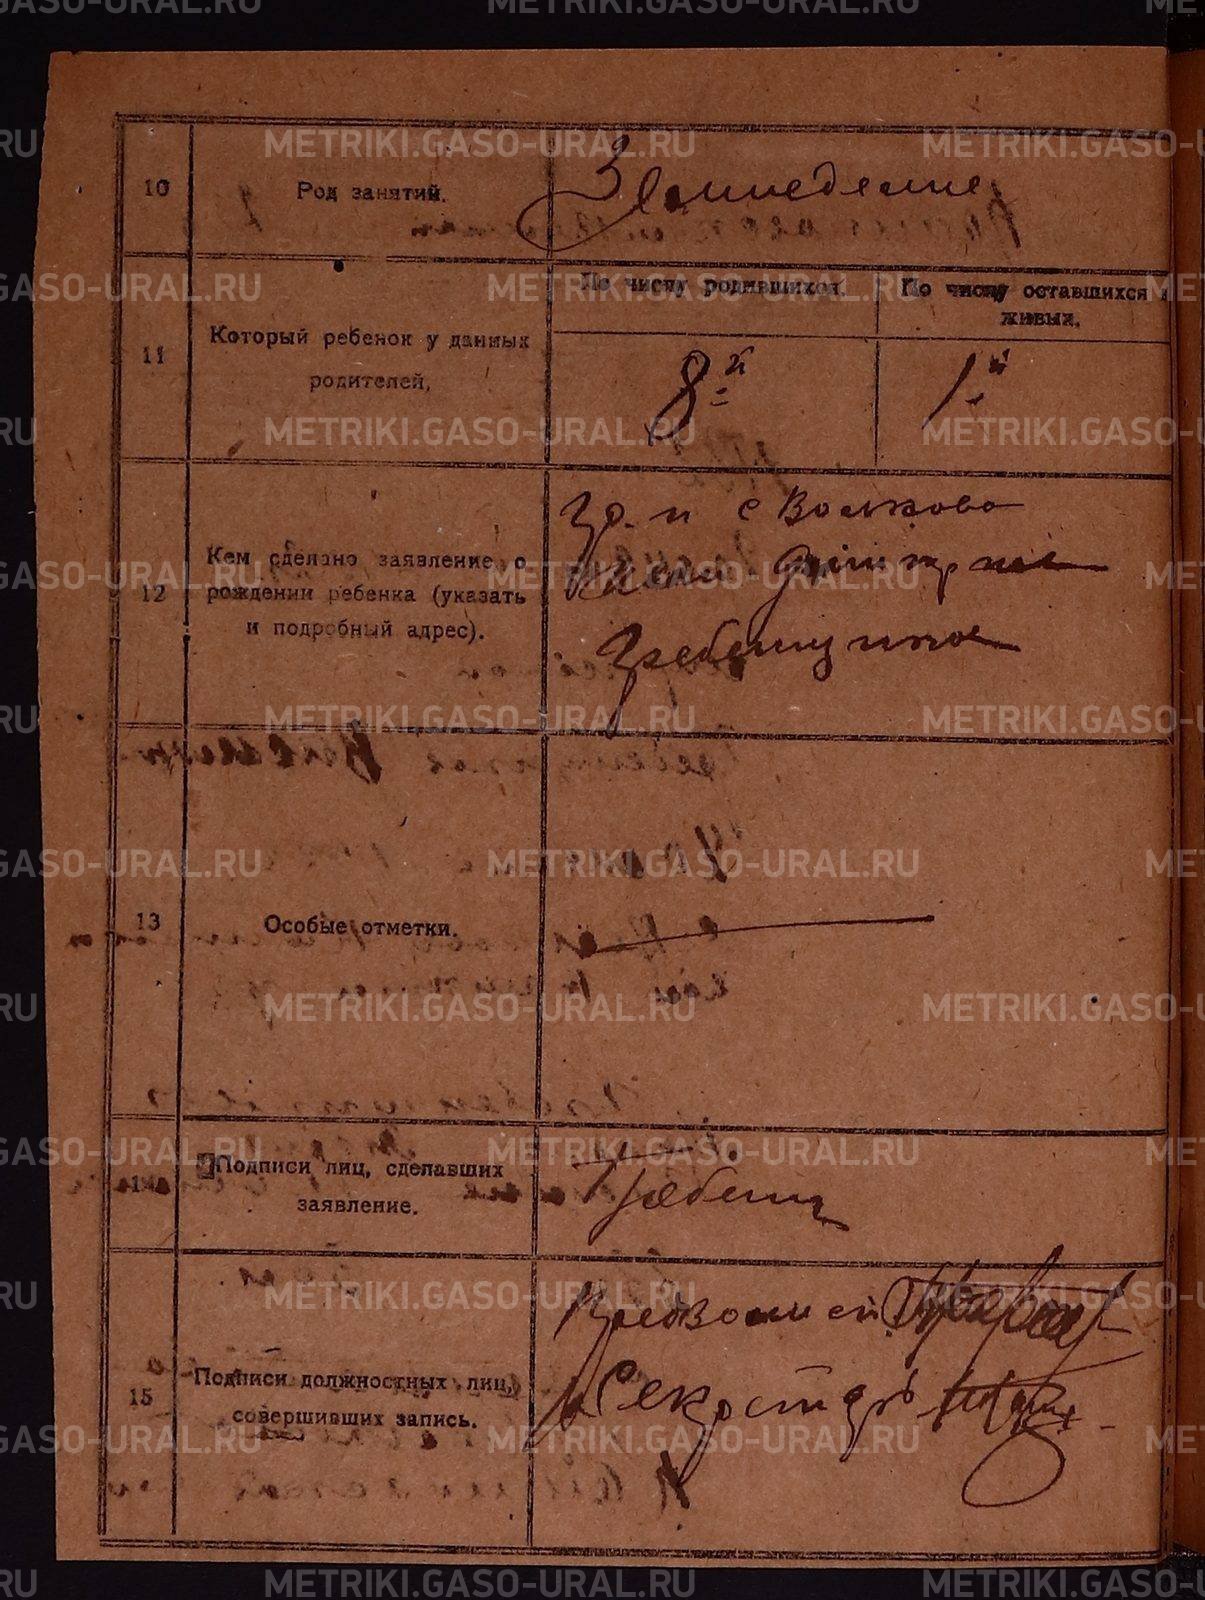 10
Род занятий.
Земледелие
11
Который ребенок у данных
родителей,
По числу родившихся.
По числу оставшихся в
живых.
8-й
1-й
12
Кем сделано заявление о
рождении ребенка (указать
и подробный адрес).
гр-н с Волково
Гребенщиков
13
Особые отметки.
14
Подписи лиц, сделавших
заявление.
Гребенщ
15
Подписи должностных лиц,
совершивших запись.
Секретарь
METRIKI.GASO-URAL.RU